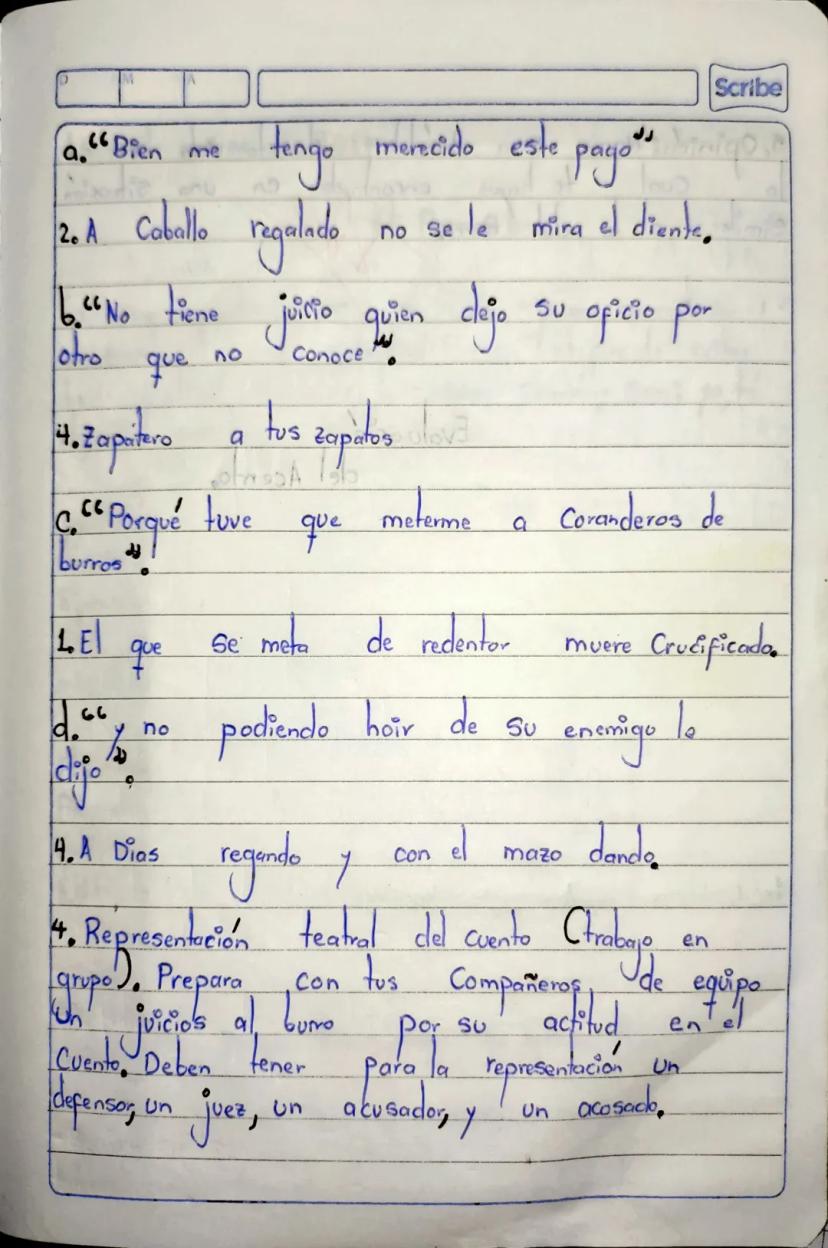 D M A
Scribe
a. "Bien me tengo merecido este pago"
2. A Caballo regalado no se le mira el diente.
b. "No tiene juicio quien dejo su oficio por
otro que no conoce".
4. Zapatero a tus zapatos
C. "Porqué tuve que meterme a Coranderos de
burros"!
1. El que se meta de redentor muere Crucificado.
d. "y no podiendo hoir de su enemigo le
dijo".
4. A Dios regando y con el mazo dando.
4. Representación teatral del cuento (trabajo en
grupo). Prepara con tus Compañeros de equipo
un juicios al burro por su actitud en el
Cuento. Deben tener para la representación un
defensor, un juez, un acusador, y un acosado.